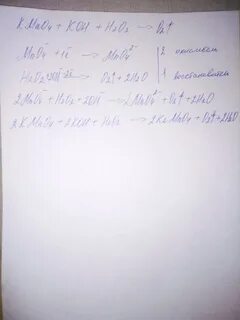 KMnO₄ + KOH + H₂O₂ → O₂↑
MnO₄⁻ + 1ē → MnO₄²⁻ | 2 окислит
H₂O₂ + 2OH⁻ - 2ē → O₂↑ + 2H₂O | 1 восстановитель
2MnO₄⁻ + H₂O₂ + 2OH⁻ → 2MnO₄²⁻ + O₂↑ + 2H₂O
2KMnO₄ + 2KOH + H₂O₂ → 2K₂MnO₄ + O₂↑ + 2H₂O